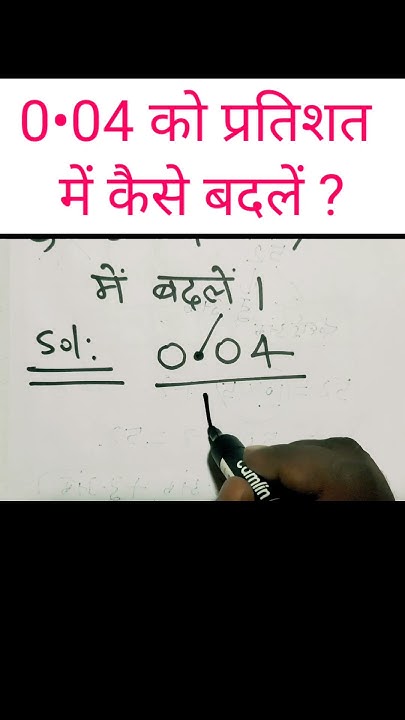 0•04 को प्रतिशत
में कैसे बदलें ?
में बदलें।
Sol: 0.04
cumlin